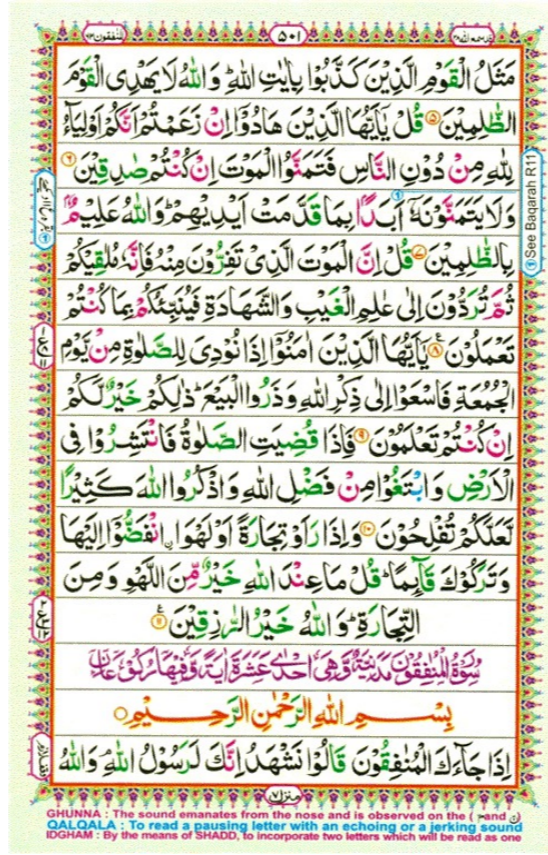 المنفقون٦٣
٥٠١
قد سمع الله٢٨
مَثَلُ الْقَوْمِ الَّذِيْنَ كَذَّبُوْا بِاٰيٰتِ اللّٰهِ ؕ وَاللّٰهُ لَا يَهْدِى الْقَوْمَ
الظّٰلِمِيْنَ ۝٥ قُلْ يٰۤاَيُّهَا الَّذِيْنَ هَادُوْۤا اِنْ زَعَمْتُمْ اَنَّكُمْ اَوْلِيَآءُ
لِلّٰهِ مِنْ دُوْنِ النَّاسِ فَتَمَنَّوُا الْمَوْتَ اِنْ كُنْتُمْ صٰدِقِيْنَ ۝٦
وَلَا يَتَمَنَّوْنَهٗۤ اَبَدًۢا بِمَا قَدَّمَتْ اَيْدِيْهِمْ ؕ وَاللّٰهُ عَلِيْمٌۢ
بِالظّٰلِمِيْنَ ۝٧ قُلْ اِنَّ الْمَوْتَ الَّذِىْ تَفِرُّوْنَ مِنْهُ فَاِنَّهٗ مُلٰقِيْكُمْ
ثُمَّ تُرَدُّوْنَ اِلٰى عٰلِمِ الْغَيْبِ وَالشَّهَادَةِ فَيُنَبِّئُكُمْ بِمَا كُنْتُمْ
تَعْمَلُوْنَ ۝٨ يٰۤاَيُّهَا الَّذِيْنَ اٰمَنُوْۤا اِذَا نُوْدِىَ لِلصَّلٰوةِ مِنْ يَّوْمِ
الْجُمُعَةِ فَاسْعَوْا اِلٰى ذِكْرِ اللّٰهِ وَذَرُوا الْبَيْعَ ؕ ذٰلِكُمْ خَيْرٌ لَّكُمْ
اِنْ كُنْتُمْ تَعْلَمُوْنَ ۝٩ فَاِذَا قُضِيَتِ الصَّلٰوةُ فَانْتَشِرُوْا فِى
الْاَرْضِ وَابْتَغُوْا مِنْ فَضْلِ اللّٰهِ وَاذْكُرُوا اللّٰهَ كَثِيْرًا
لَّعَلَّكُمْ تُفْلِحُوْنَ ۝١٠ وَاِذَا رَاَوْا تِجَارَةً اَوْ لَهْوَا اۨنْفَضُّوْۤا اِلَيْهَا
وَتَرَكُوْكَ قَآئِمًا ؕ قُلْ مَا عِنْدَ اللّٰهِ خَيْرٌ مِّنَ اللَّهْوِ وَمِنَ
التِّجَارَةِ ؕ وَاللّٰهُ خَيْرُ الرّٰزِقِيْنَ ۝١١
سُوْرَةُ الْمُنٰفِقُوْنَ مَدَنِيَّةٌ وَّهِىَ اِحْدٰى عَشْرَةَ اٰيَةً وَّفِيْهَا رُكُوْعَانِ
بِسْمِ اللّٰهِ الرَّحْمٰنِ الرَّحِيْمِ
اِذَا جَآءَكَ الْمُنٰفِقُوْنَ قَالُوْا نَشْهَدُ اِنَّكَ لَرَسُوْلُ اللّٰهِ ۘ وَاللّٰهُ
منزل٧
See Baqarah R11
GHUNNA : The sound emanates from the nose and is observed on the ( م and ن
QALQALA : To read a pausing letter with an echoing or a jerking sound
IDGHAM : By the means of SHADD, to incorporate two letters which will be read as one